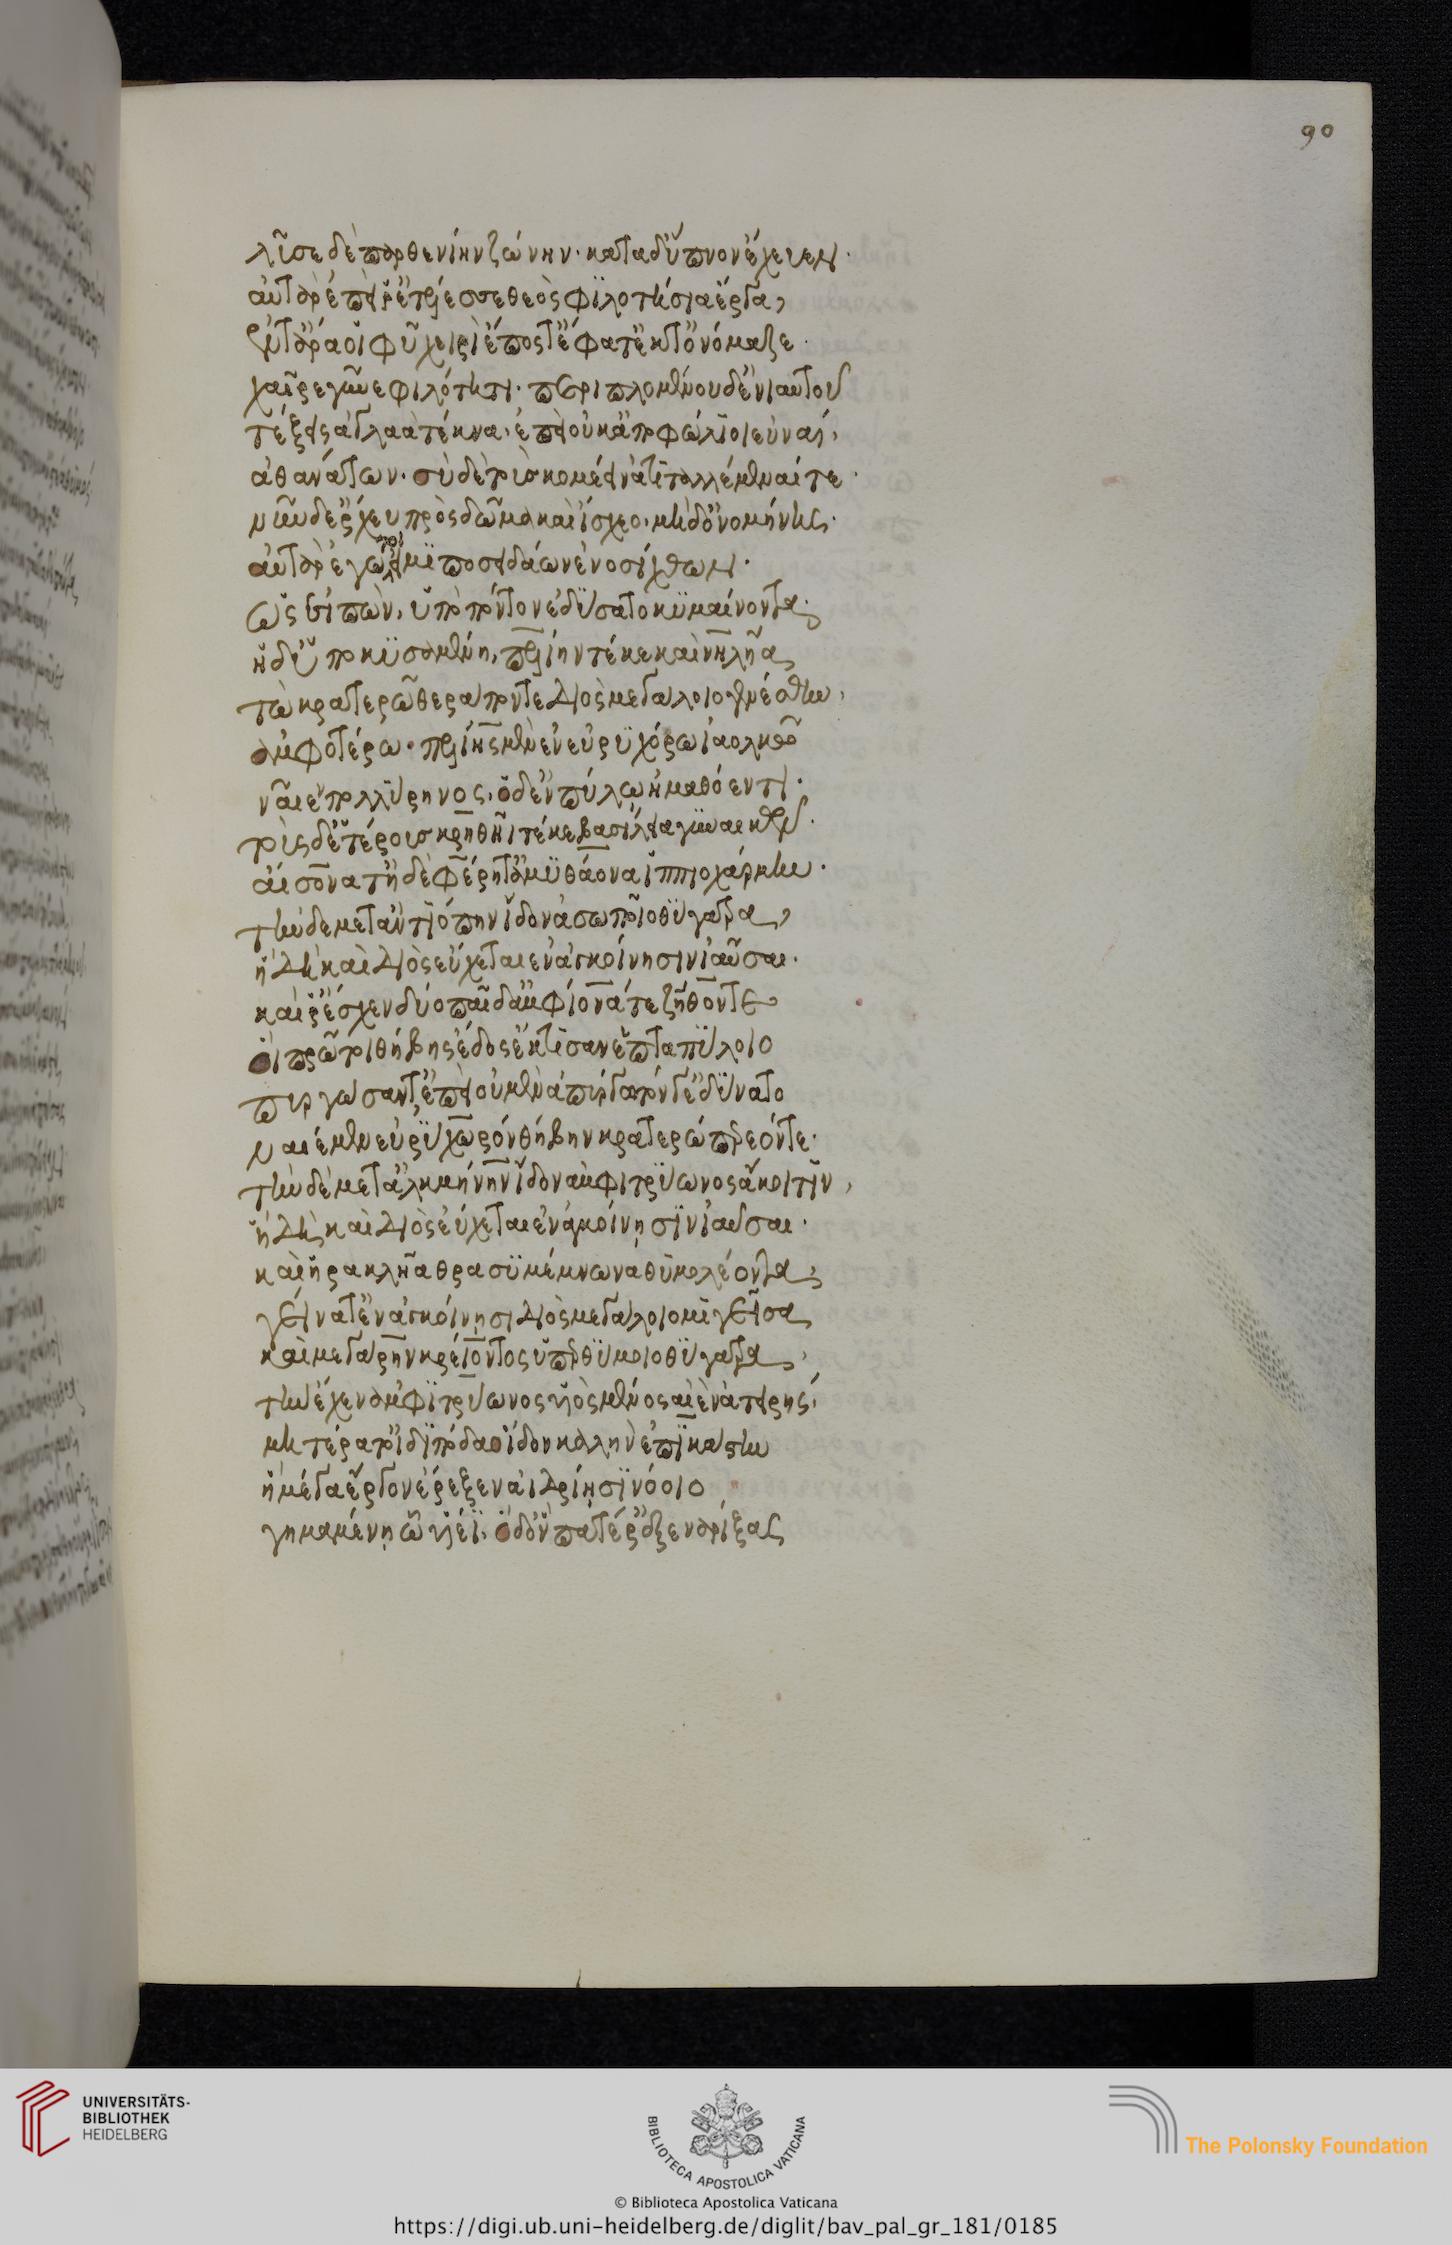 λῦσε δὲ παρθενίην ζώνην· κατὰ δ' ὕπνον ἔχευεν·
αὐτὰρ ἐπεί ῥ' ἐτέλεσσε θεὸς φιλοτήσια ἔργα,
ἔν τ' ἄρα οἱ φῦ χειρὶ ἔπος τ' ἔφατ' ἔκ τ' ὀνόμαζε·
χαῖρε γύναι φιλότητι· περιπλομένου δ' ἐνιαυτοῦ
τέξεις ἀγλαὰ τέκνα, ἐπεὶ οὐκ ἀποφώλιοι εὐναί,
ἀθανάτων· σὺ δὲ τοὺς κομέειν ἀτιταλλέμεναί τε·
νῦν δ' ἔρχευ πρὸς δῶμα καὶ ἴσχεο, μηδ' ὀνομήνῃς·
αὐτὰρ ἐγώ τοι εἰμὶ ποσειδάων ἐνοσίχθων·
ὣς εἰπὼν, ὑπὸ πόντον ἐδύσατο κυμαίνοντα·
ἡ δ' ὑποκυσαμένη, πελίην τέκε καὶ νηλῆα
τὼ κρατερὼ θεράποντε διὸς μεγάλοιο γενέσθην,
ἀμφοτέρω· πελίης μὲν ἐν εὐρυχόρῳ ἰαολκῷ
ναῖε πολλύρηνος, ὁ δ' ἐν πύλῳ ἠμαθόεντι·
τοὺς δ' ἑτέρους κρηθῆι τέκε βασίλεια γυναικῶν·
αἴσονα τ' ἠδὲ φέρητ' ἀμυθάονα ἱππιοχάρμην·
τὴν δὲ μετ' ἀντιόπην ἴδον ἀσωποῖο θύγατρα,
ἣ δὴ καὶ διὸς εὔχεται ἐν ἀγκοίνῃσιν ἰαῦσαι·
καί ῥ' ἔσχεν δύο παῖδ' ἀμφίονά τε ζῆθόν τε
οἳ πρῶτοι θήβης ἕδος ἔκτισαν ἑπταπύλοιο
πύργωσάν τ' ἐπεὶ οὐ μὲν ἀπύργωτόν γ' ἐδύναντο
ναιέμεν εὐρύχωρον θήβην κρατερώ περ ἐόντε·
τὴν δὲ μετ' ἀλκμήνην ἴδον ἀμφιτρύωνος ἄκοιτιν,
ἣ δὴ καὶ διὸς εὔχεται ἐν ἀγκοίνῃσιν ἰαῦσαι·
καὶ ἡρακλῆα θρασυμέμνωνα θυμολέοντα,
γείνατ' ἐν ἀγκοίνῃσι διὸς μεγάλοιο μιγεῖσα
καὶ μεγάρην κρείοντος ὑπερθύμοιο θύγατρα,
τὴν ἔχεν ἀμφιτρύωνος υἱὸς μένος αἰὲν ἀτειρής,
μητέρα τ' οἰδιπόδαο ἴδον καλὴν ἐπικάστην
ἣ μέγα ἔργον ἔρεξεν ἀιδρίῃσι νόοιο
γημαμένη ᾧ υἱέϊ, ὁ δ' ὃν πατέρ' ἐξεναρίξας
90
UNIVERSITÄTS-
BIBLIOTHEK
HEIDELBERG
BIBLIOTECA APOSTOLICA VATICANA
The Polonsky Foundation
© Biblioteca Apostolica Vaticana
https://digi.ub.uni-heidelberg.de/diglit/bav_pal_gr_181/0185